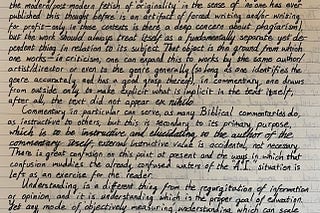 the modern/post modern fetish of originality in the sense of no one has ever
published this thought before is an artifact of forced writing and/or writing
for profit—only in those contexts is there a deep concern about plagiarism),
but the work should always treat itself as a fundamentally separate yet de-
pendent thing in relation to its subject. That object is the ground from which
one works—in criticism, one can expand this to works by the same author/
artist/director or even to the genre generally (so long as one identifies the
genre accurately and has a good grasp thereof), in commentary, one draws
from outside only to make explicit what is implicit in the text itself,
after all, the text did not appear ex nihilo.
Commentary in particular can serve, as many Biblical commentaries do,
as instructive to others, but this is secondary to its primary purpose,
which is to be instructive and elucidating to the author of the
commentary itself; external instructive value is accidental, not necessary.
There is great confusion on this point at present and the ways in which that
confusion muddies the already confused waters of the A.I. situation is
left as an exercise for the reader.
Understanding is a different thing from the regurgitation of information
or opinion, and it is understanding which is the proper goal of education.
Yet any mode of objectively measuring understanding which can scale